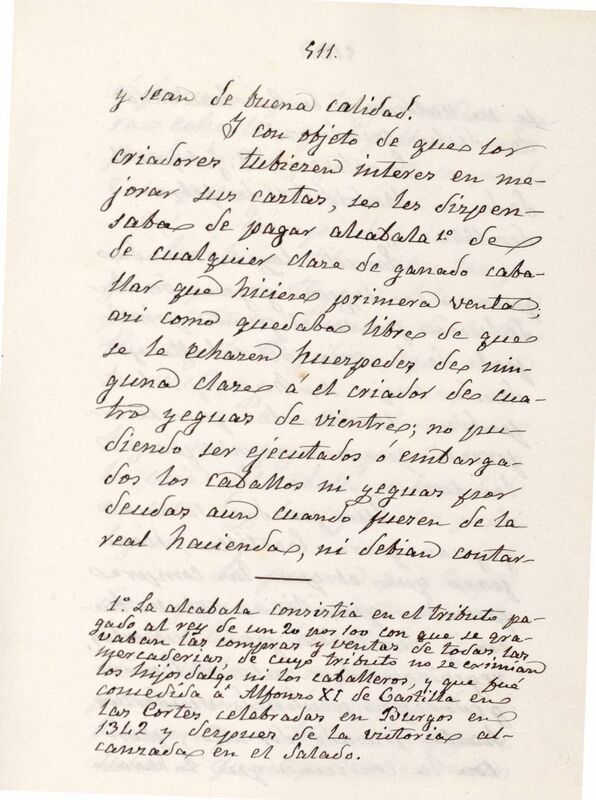 511.
y sean de buena calidad.
Y con objeto de que los
criadores tubiesen interes en me-
jorar sus castas, se les dispen-
saba de pagar alcabala 1º de
de cualquier clase de ganado caba-
llar que hiciese primera venta,
asi como quedaba libre de que
se le echasen huespedes de nin-
guna clase á el criador de cua-
tro yeguas de vientre; no pu-
diendo ser ejecutados ó embarga-
dos los caballos ni yeguas por
deudas aun cuando fuesen de la
real hacienda, ni debian contar-
1º. La alcabala consistia en el tributo pa-
gado al rey de un 20 pos 100 con que se gra-
vaban las compras y ventas de todas las
mercaderias, de cuyo tributo no se eximian
los hijosdalgo ni los caballeros, y que fué
concedida á Alfonso XI de Castilla en
las Cortes celebradas en Burgos en
1342 y despues de la victoria al-
canzada en el Salado.